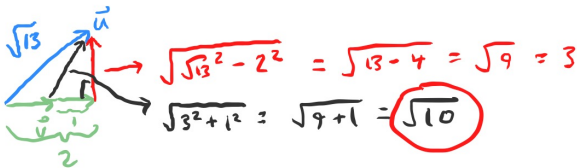 √13 u⃗
→ √(√13² - 2²) = √(13 - 4) = √9 = 3
√(3² + 1²) = √(9 + 1) = √10
1
2